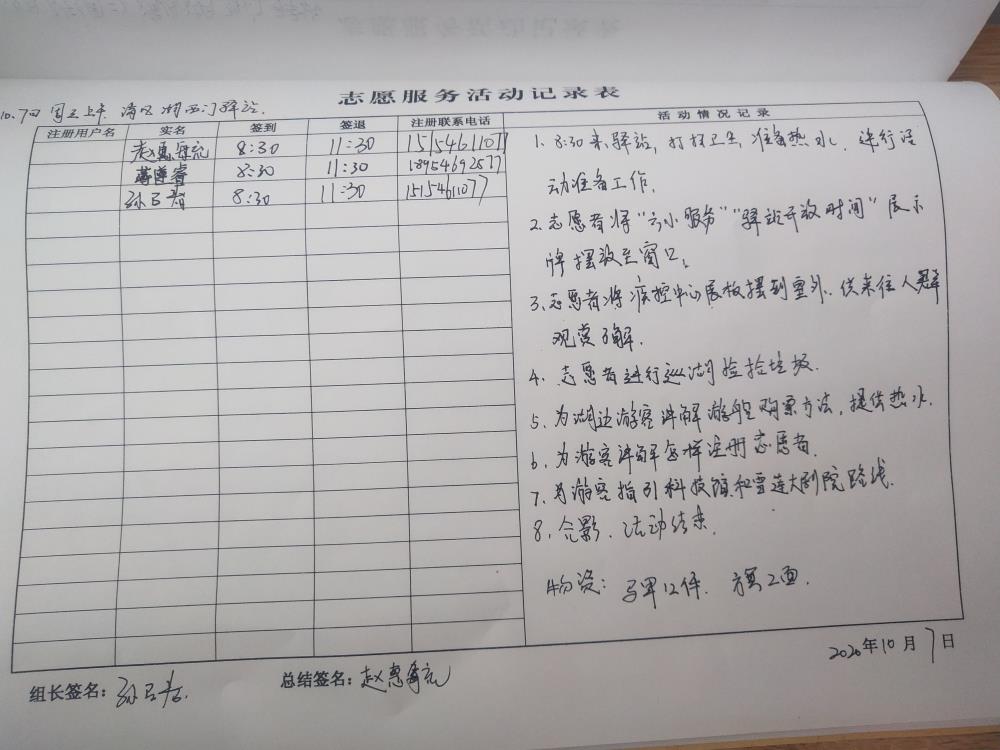 志愿服务活动记录表
10.7日 周三上午 湾区湖西门驿站.
注册用户名 实名 签到 签退 注册联系电话 活动情况记录
8:30 11:30 15154611077
8:30 11:30 18954692577
8:30 11:30 1515461077
1. 8:30来驿站,打扫卫生,准备热水,进行活
动准备工作.
2.志愿者将“六小服务”“驿站开放时间”展示
牌摆放至窗口。
3.志愿者将疾控中心展板摆到室外、供来往人群
观赏了解.
4. 志愿者进行巡湖捡拾垃圾.
5. 为湖边游客讲解游船购票方法,提供热水.
6. 为游客讲解怎样注册志愿者.
7. 为游客指引科技馆和雪莲大剧院路线.
8. 合影、活动结束.
物资: 马甲12件. 旗2面.
2020年10月7日
组长签名: 总结签名:赵惠